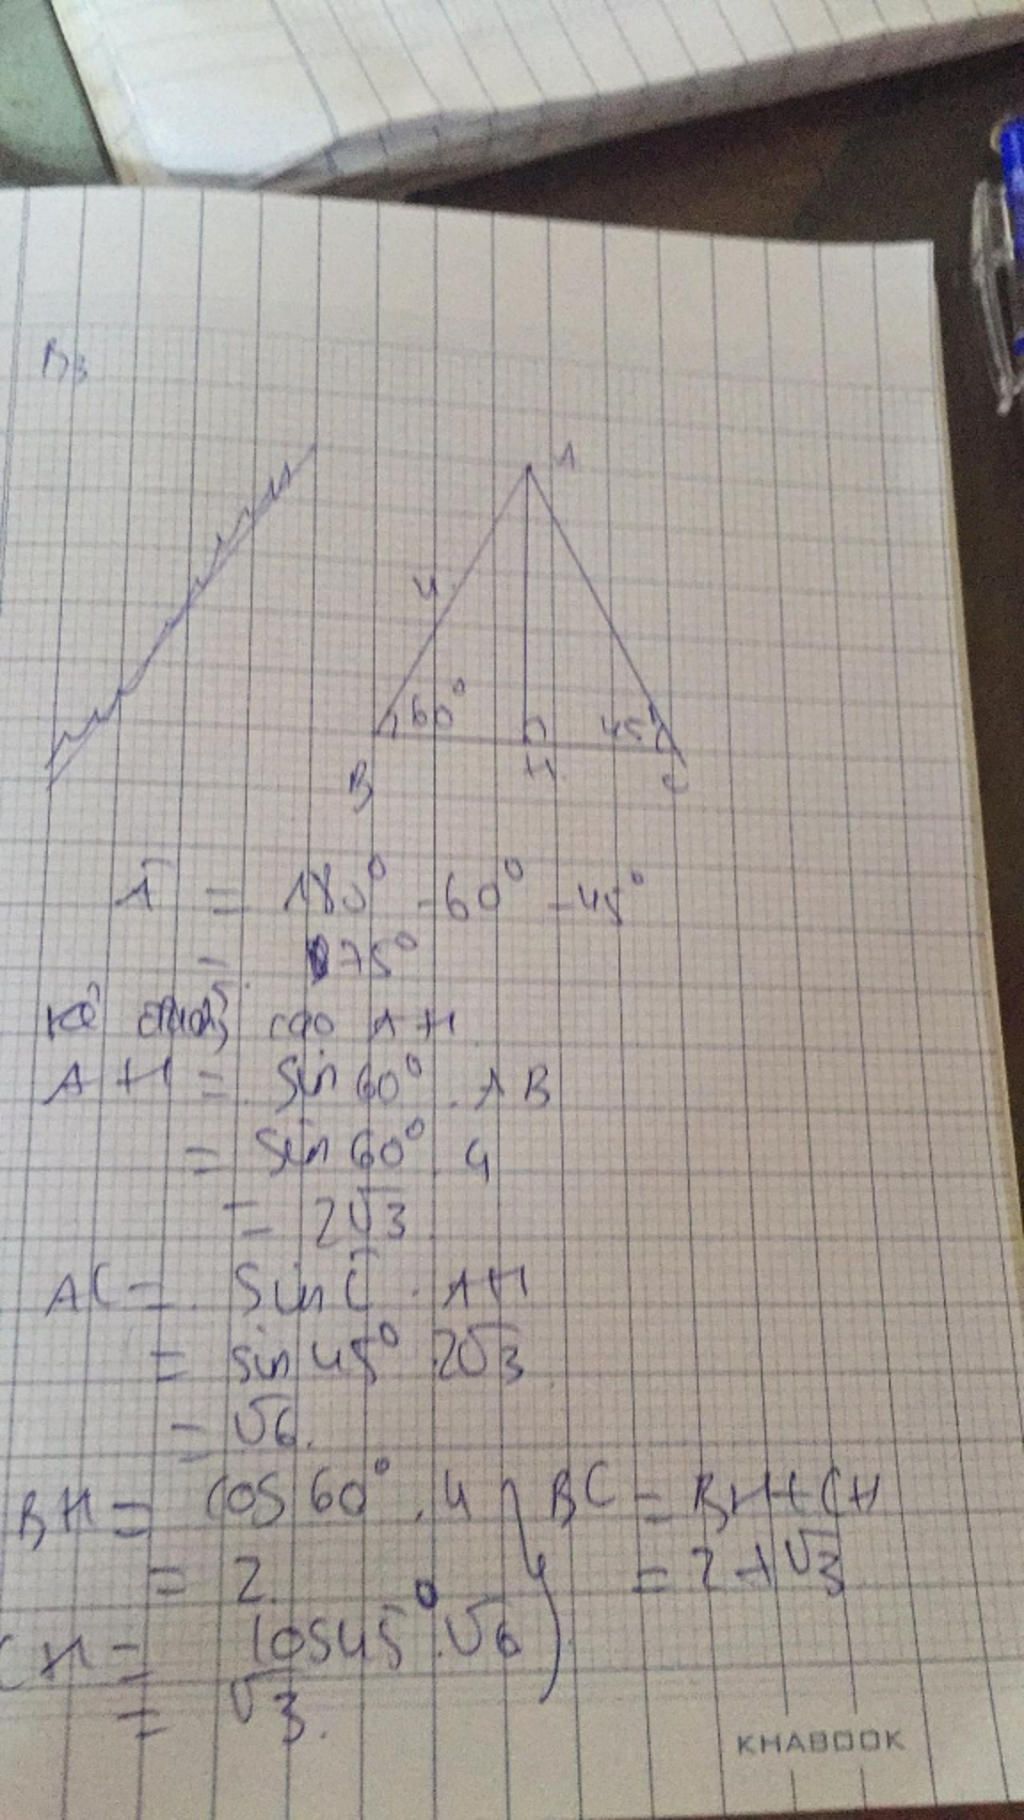 B3
A
4
60°
45°
B
H
C
Â = 180° - 60° - 45°
= 75°
Kẻ đường cao AH
AH = sin 60° . AB
= sin 60° . 4
= 2√3
AC = Sin Ĉ . AH
= sin 45° . 2√3
= √6.
BH = cos 60° . 4
= 2.
CH = cos 45° . √6
= √3.
BC = BH + CH
= 2 + √3
KHABOOK